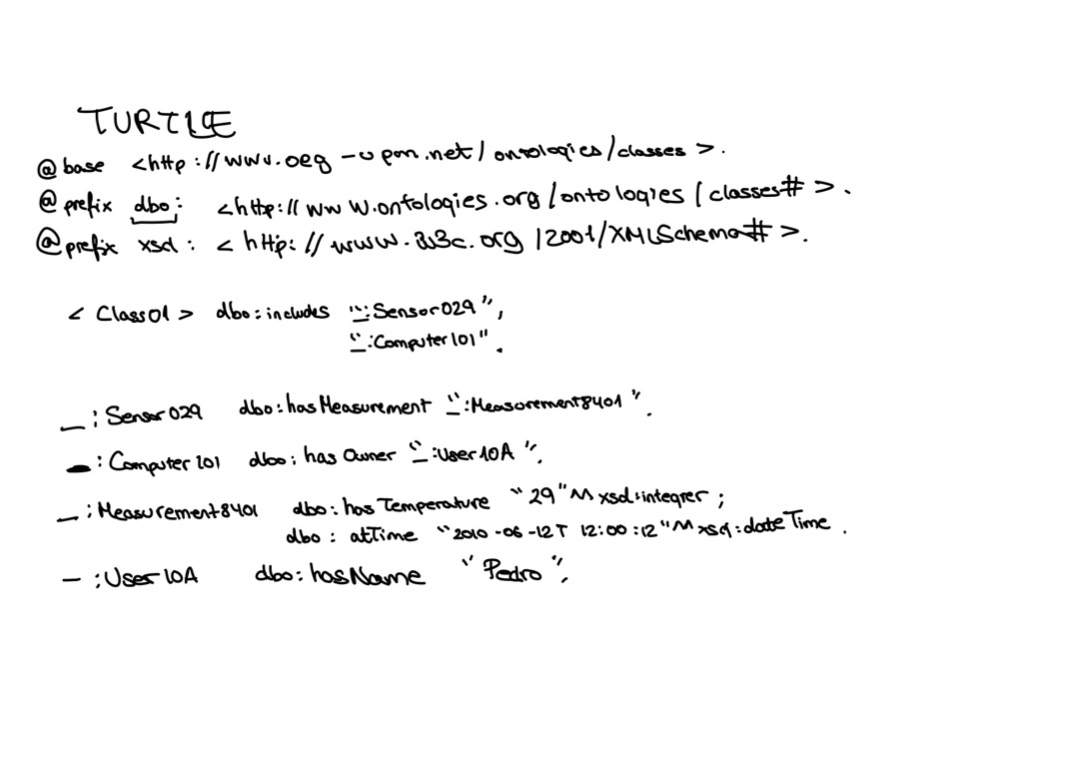 TURTLE
@base <http://www.oeg-upm.net/ontologies/classes>.
@prefix dbo: <http://www.ontologies.org/ontologies/classes#>.
@prefix xsd: <http://www.w3c.org/2001/XMLSchema#>.
<Class01> dbo:includes "_:Sensor029",
"_:Computer101".
_:Sensor029 dbo:hasMeasurement "_:Measurement8401".
_:Computer101 dbo:hasOwner "_:User10A".
_:Measurement8401 dbo:hasTemperature "29"^^xsd:integrer;
dbo:atTime "2010-06-12T12:00:12"^^xsd:dateTime.
_:User10A dbo:hasName "Pedro".